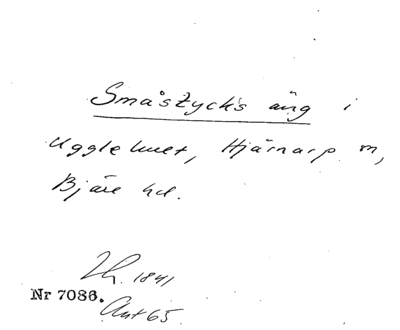 Småstycks äng i
Ugglehult, Hjärnarp m,
Bjäre hd.
Th. 1841
Nr 7086.
Akt 65